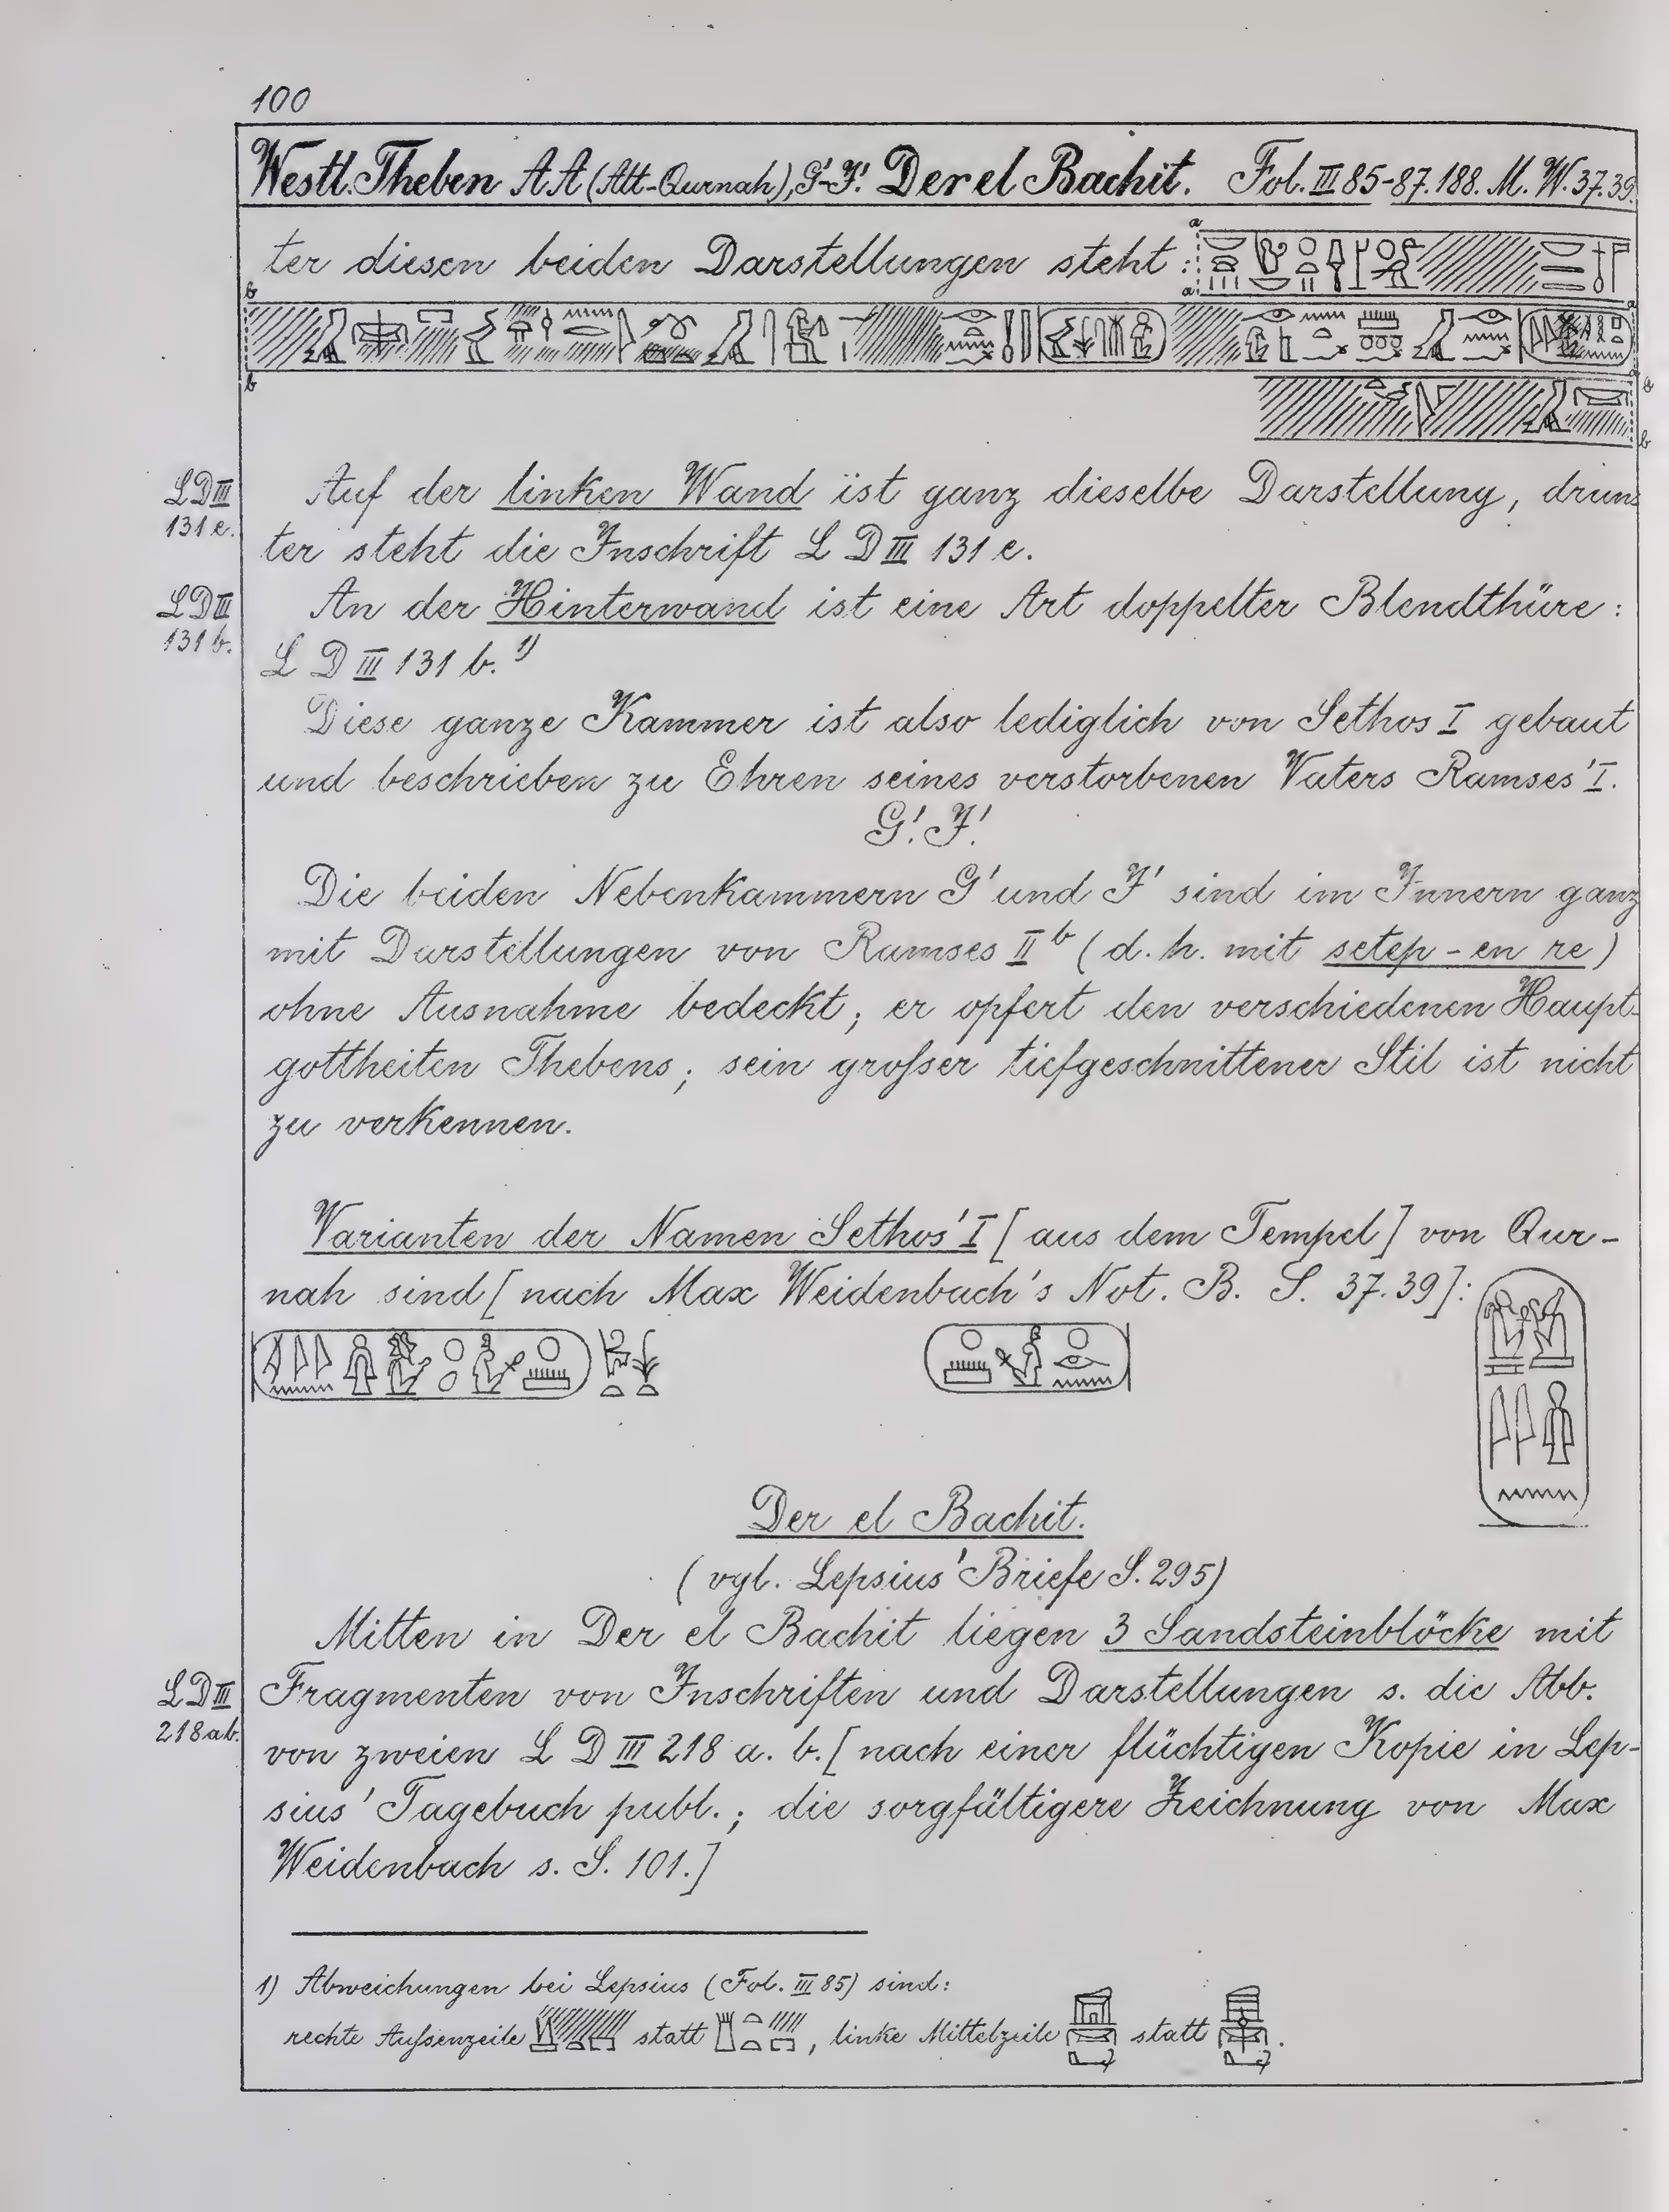 100
Westl. Theben AA (Alt-Qurnah), G'-J'. Der el Bachit. Fol. III 85-87. 188. M. W. 37. 39.
ter diesen beiden Darstellungen steht:
LD III
131 e.
Auf der linken Wand ist ganz dieselbe Darstellung, drun-
ter steht die Inschrift L D III 131 e.
LD III
131 b.
An der Hinterwand ist eine Art doppelter Blendthüre:
L D III 131 b. 1)
Diese ganze Kammer ist also lediglich von Sethos I gebaut
und beschrieben zu Ehren seines verstorbenen Vaters Ramses' I.
G'. J'.
Die beiden Nebenkammern G' und J' sind im Innern ganz
mit Darstellungen von Ramses II b (d. h. mit setep-en re)
ohne Ausnahme bedeckt; er opfert den verschiedenen Haupt-
gottheiten Thebens; sein großer tiefgeschnittener Stil ist nicht
zu verkennen.
Varianten der Namen Sethos' I [aus dem Tempel] von Qur-
nah sind [nach Max Weidenbach's Not. B. S. 37. 39]:
Der el Bachit.
(vgl. Lepsius' Briefe S. 295)
Mitten in Der el Bachit liegen 3 Sandsteinblöcke mit
LD III
218 ab.
Fragmenten von Inschriften und Darstellungen s. die Abb.
von zweien L D III 218 a. b. [nach einer flüchtigen Kopie in Lep-
sius' Tagebuch publ.; die sorgfältigere Zeichnung von Max
Weidenbach s. S. 101.]
1) Abweichungen bei Lepsius (Fol. III 85) sind:
rechte Außenzeile statt , linke Mittelzeile statt .